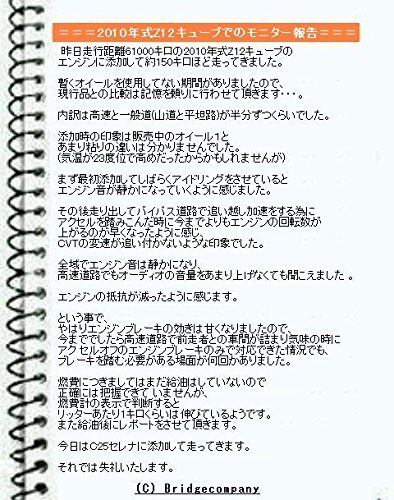 ＝＝＝2010年式Z12キューブでのモニター報告＝＝＝
昨日走行距離61000キロの2010年式Z12キューブの
エンジンに添加して約150キロほど走ってきました。
暫くオイールを使用してない期間がありましたので、
現行品との比較は記憶を頼りに行わせて頂きます・・・。
内訳は高速と一般道(山道と平坦路)が半分ずつくらいでした。
添加時の印象は販売中のオイール1と
あまり粘りの違いは分かりませんでした。
(気温が23度位で高めだったからかもしれませんが)
まず最初添加してしばらくアイドリングをさせていると
エンジン音が静かになっていくように感じました。
その後走り出してバイパス道路で追い越し加速をする為に
アクセルを踏みこんだ時に今までよりもエンジンの回転数が
上がるのが早くなったように感じ、
CVTの変速が追い付かないような印象でした。
全域でエンジン音は静かになり、
高速道路でもオーディオの音量をあまり上げなくても聞こえました 。
エンジンの抵抗が減ったように感じます。
という事で、
やはりエンジンブレーキの効きは甘くなりましたので、
今まででしたら高速道路で前走者との車間が詰まり気味の時に
アクセルオフのエンジンブレーキのみで対応できた情況でも、
ブレーキを踏む必要がある場面が何回かありました。
燃費につきましてはまだ給油はしていないので
正確には把握できて いませんが、
燃費計の表示で判断すると
リッターあたり1キロくらいは伸びているようです。
また給油後にレポートをさせて頂きます。
今日はC25セレナに添加して走ってきます。
それでは失礼いたします。
(C) Bridgecompany